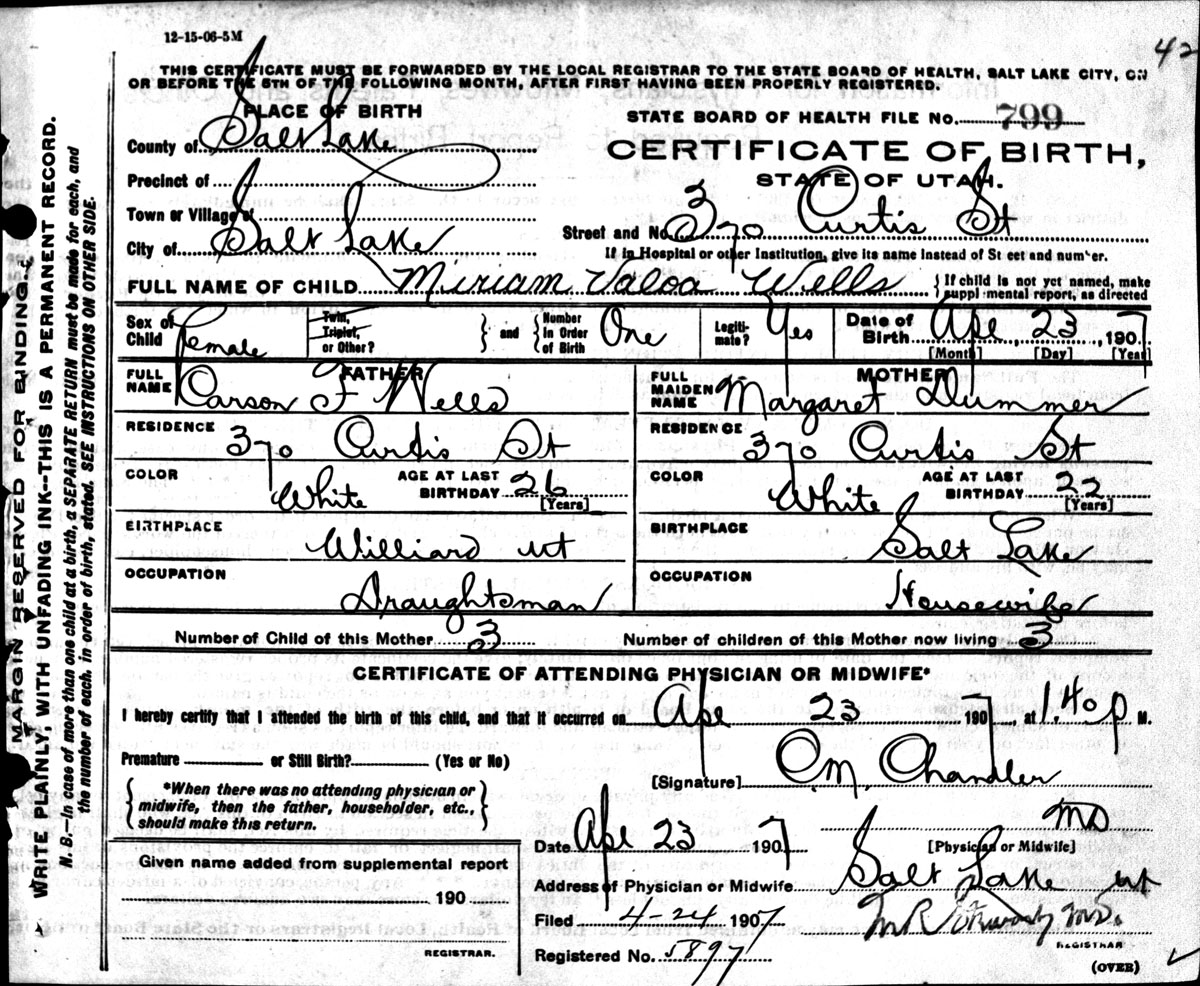 12-15-06-5M
42
THIS CERTIFICATE MUST BE FORWARDED BY THE LOCAL REGISTRAR TO THE STATE BOARD OF HEALTH, SALT LAKE CITY, ON
OR BEFORE THE 5TH OF THE FOLLOWING MONTH, AFTER FIRST HAVING BEEN PROPERLY REGISTERED.
PLACE OF BIRTH
STATE BOARD OF HEALTH FILE No. 799
County of Salt Lake
CERTIFICATE OF BIRTH,
STATE OF UTAH.
Precinct of
Town or Village of
Street and No. 370 Curtis St
City of Salt Lake
If in Hospital or other Institution, give its name instead of Street and number.
FULL NAME OF CHILD Miriam Valoa Wells
{If child is not yet named, make
supplemental report, as directed
Sex of Child Female
Twin, Triplet, or Other?
and
Number in Order of Birth One
Legitimate? Yes
Date of Birth Apr 23, 1907
[Month] [Day] [Year]
FATHER
FULL NAME Carson F Wells
MOTHER
FULL MAIDEN NAME Margaret Dummer
RESIDENCE 370 Curtis St
RESIDENCE 370 Curtis St
COLOR White AGE AT LAST BIRTHDAY 26 [Years]
COLOR White AGE AT LAST BIRTHDAY 22 [Years]
BIRTHPLACE Williard ut
BIRTHPLACE Salt Lake
OCCUPATION Draughtsman
OCCUPATION Housewife
Number of Child of this Mother 3
Number of children of this Mother now living 3
CERTIFICATE OF ATTENDING PHYSICIAN OR MIDWIFE*
I hereby certify that I attended the birth of this child, and that it occurred on Apr 23 1907, at 1.40 p M.
Premature or Still Birth? (Yes or No)
[Signature] O.M. Chandler
*When there was no attending physician or
midwife, then the father, householder, etc.,
should make this return.
MD
Date Apr 23 1907
[Physician or Midwife]
Given name added from supplemental report
190
REGISTRAR.
Address of Physician or Midwife Salt Lake ut
Filed 4-24 1907
M.R. MD.
REGISTRAR
Registered No. 5897
(OVER)
MARGIN RESERVED FOR BINDING.
WRITE PLAINLY, WITH UNFADING INK--THIS IS A PERMANENT RECORD.
N. B.--In case of more than one child at a birth, a SEPARATE RETURN must be made for each, and
the number of each, in order of birth, stated. SEE INSTRUCTIONS ON OTHER SIDE.